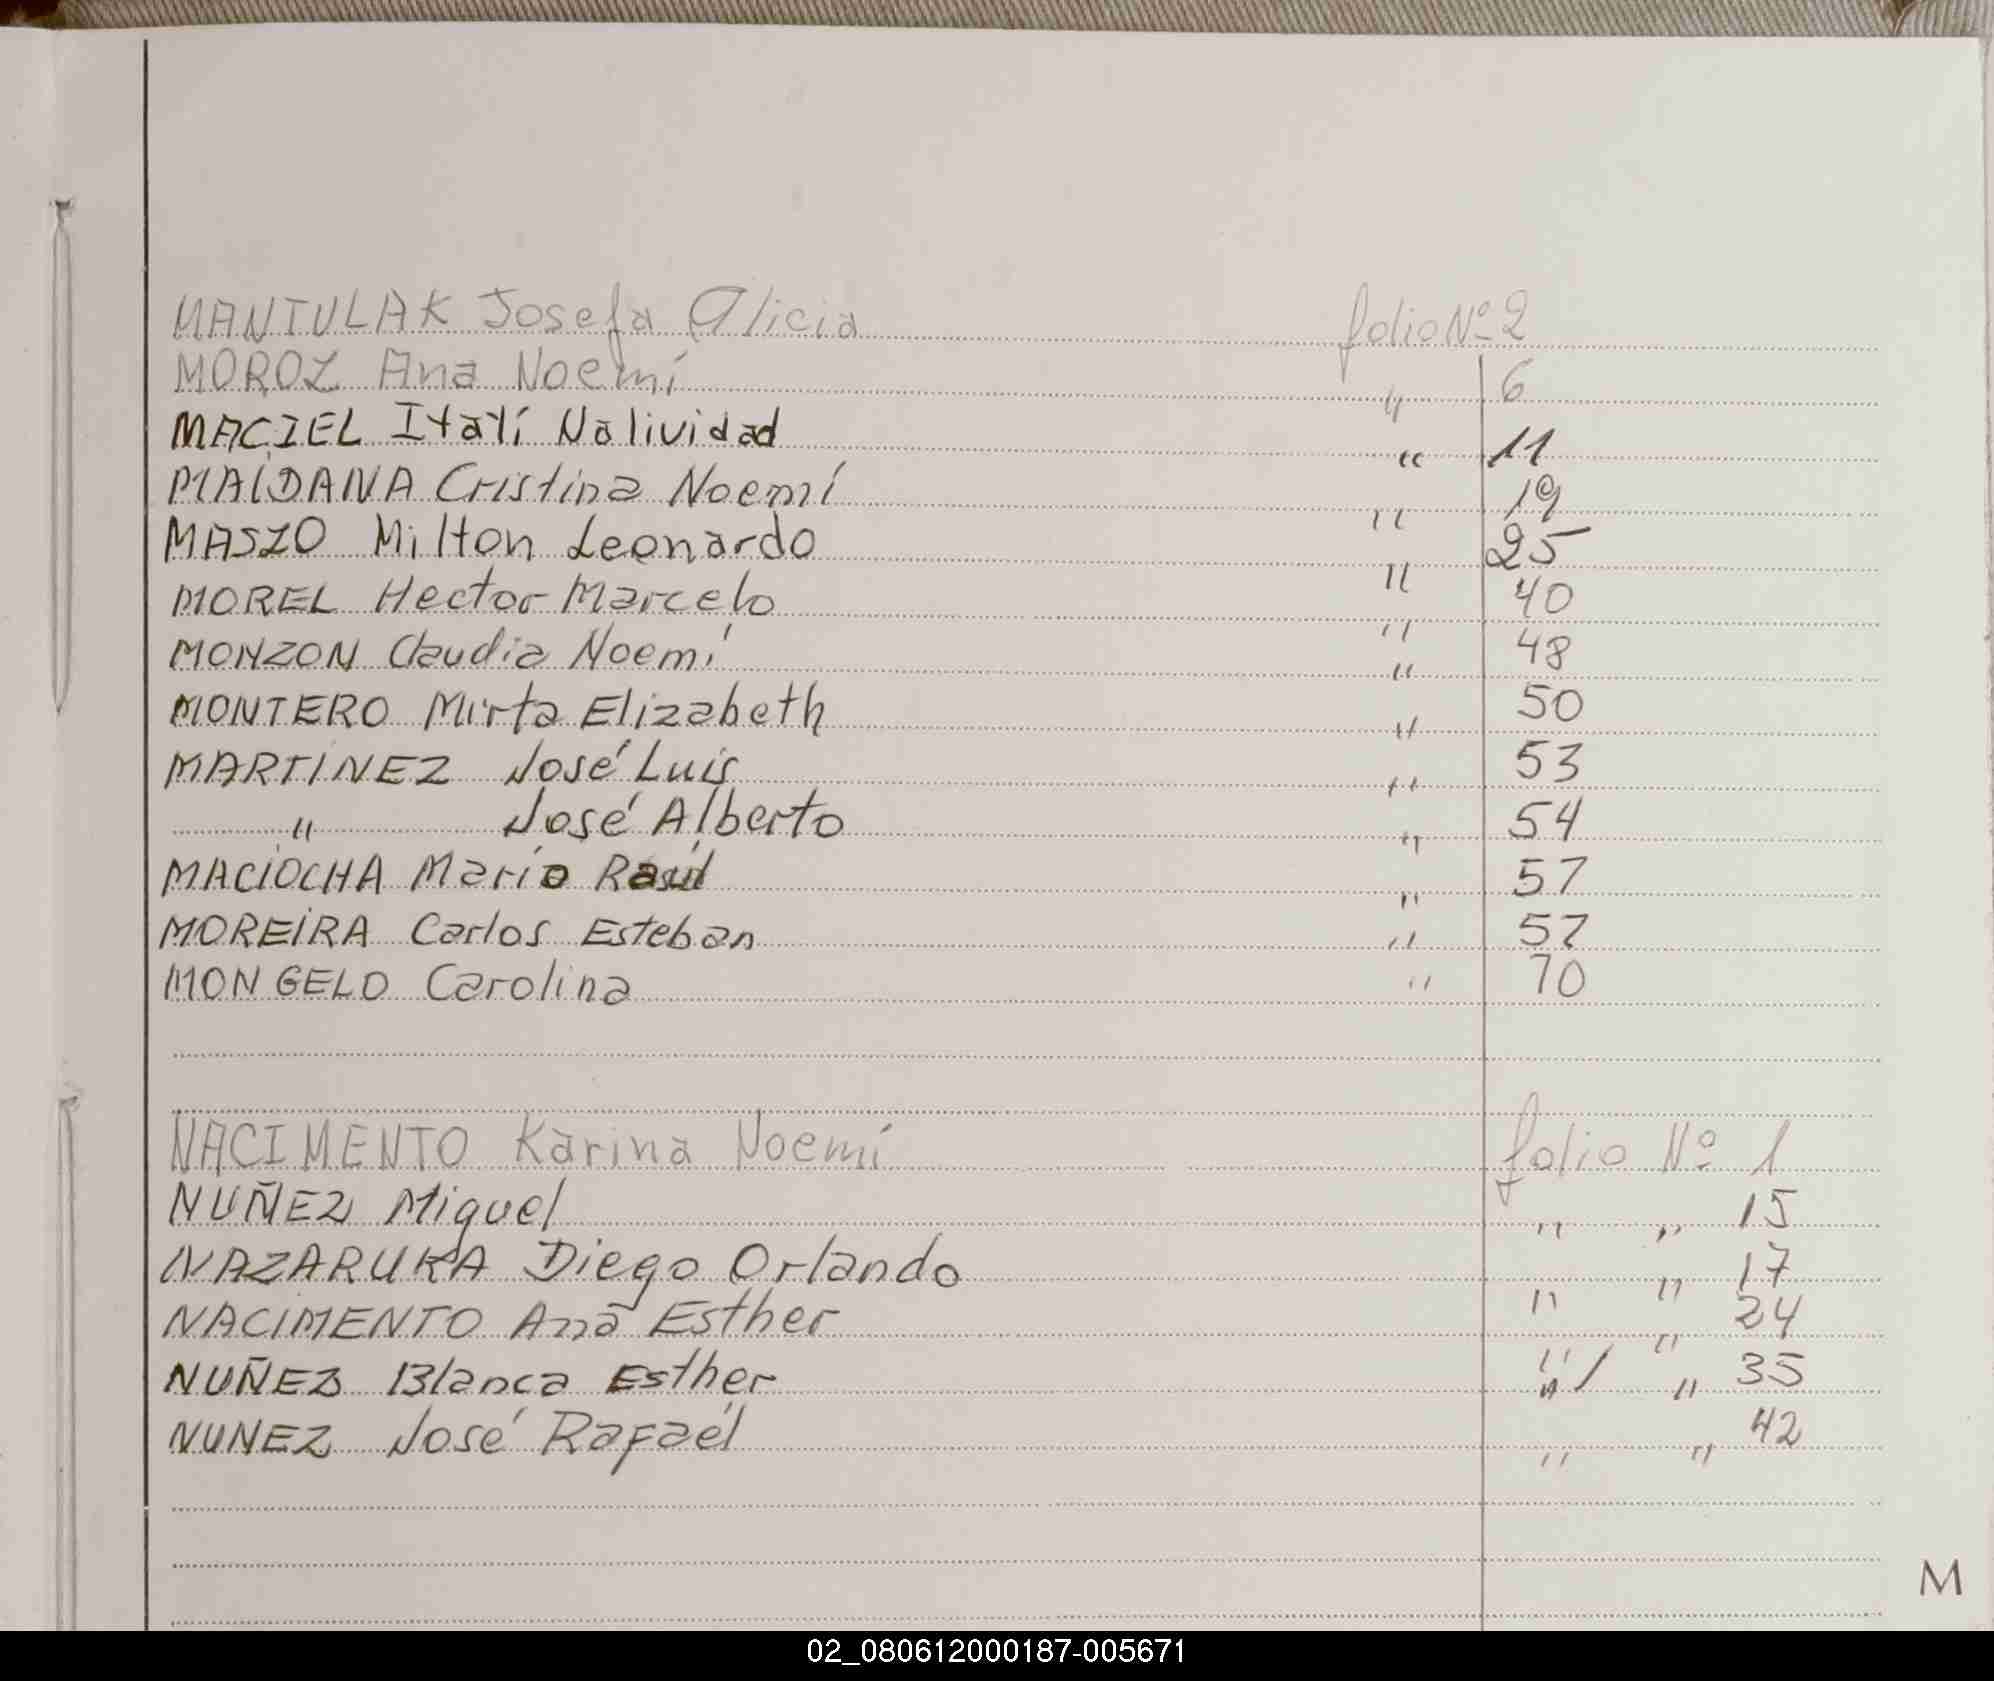 MANTULAK Josefa Alicia folio Nº 2
MOROZ Ana Noemí " 6
MACIEL Itatí Natividad " 11
MAIDANA Cristina Noemí " 19
MASZO Milton Leonardo " 25
MOREL Hector Marcelo " 40
MONZON Claudia Noemí " 48
MONTERO Mirta Elizabeth " 50
MARTINEZ José Luis " 53
" José Alberto " 54
MACIOCHA Mario Raúl " 57
MOREIRA Carlos Esteban " 57
MONGELO Carolina " 70
NACIMENTO Karina Noemí folio Nº 1
NUÑEZ Miguel " " 15
NAZARUKA Diego Orlando " " 17
NACIMENTO Ana Esther " " 24
NUÑEZ Blanca Esther " / " 35
NUNEZ José Rafaél " " 42
M
02_080612000187-005671